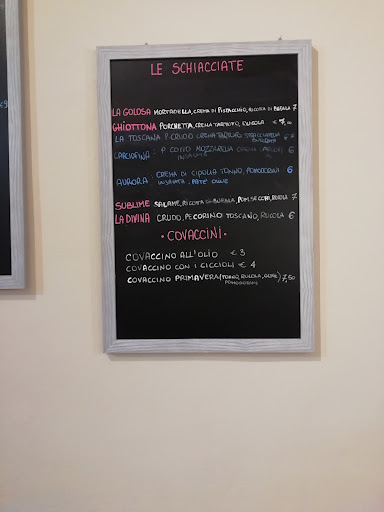 LE SCHIACCIATE
LA GOLOSA MORTADELLA, CREMA DI PISTACCHIO, RICOTTA DI BUFALA 7
GHIOTTONA PORCHETTA, CREMA TARTUFO, RUCOLA € 7,00
LA TOSCANA P. CRUDO CREMA TARTUFO STRACCIATELLA
CARCIOFINA: P. COTTO MOZZARELLA CREMA CARCIOFI 6
INSALATA
AURORA: CREMA DI CIPOLLA TONNO, POMODORINI 6
INSALATA PATÈ OLIVE
SUBLIME SALAME, RICOTTA DI BUFALA, POM. SECCHI, RUCOLA 7
LA DIVINA CRUDO, PECORINO TOSCANO, RUCOLA 6
· COVACCINI ·
COVACCINO ALL'OLIO € 3
COVACCINO CON I CICCIOLI € 4
COVACCINO PRIMAVERA (TONNO, RUCOLA, OLIVE 7,50
POMODORINI